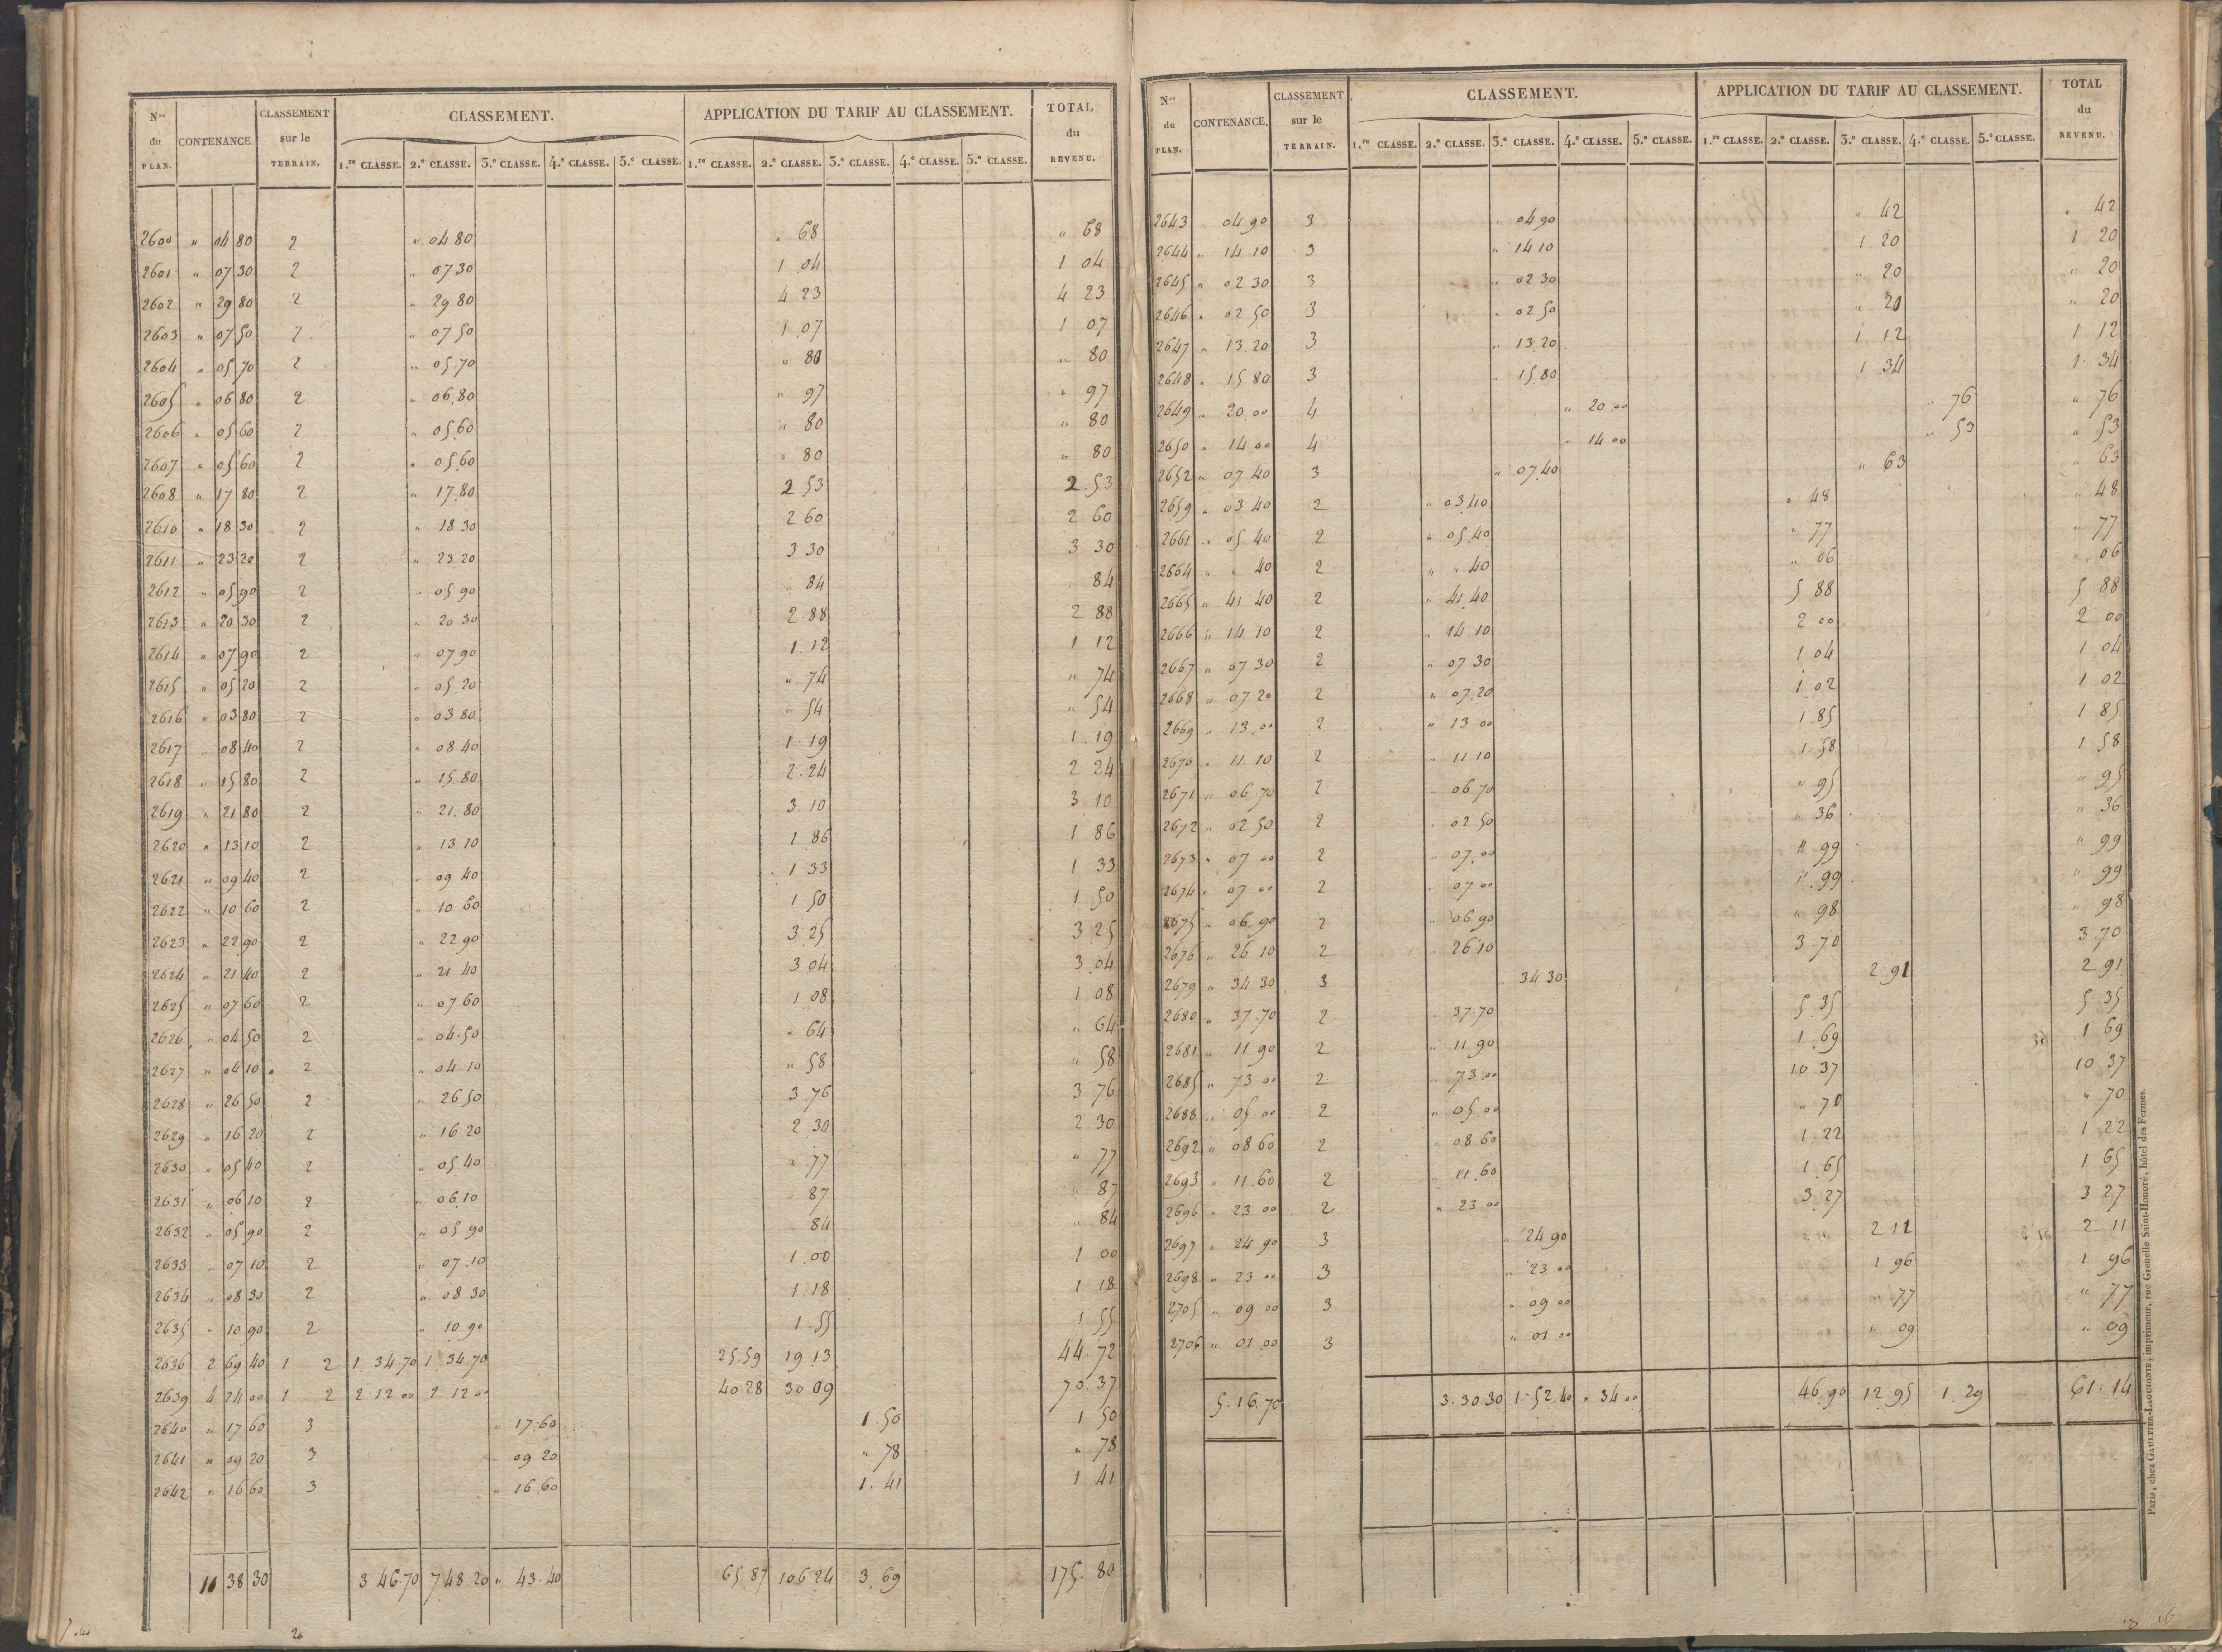 Nos du PLAN. CONTENANCE. CLASSEMENT sur le TERRAIN. CLASSEMENT. APPLICATION DU TARIF AU CLASSEMENT. TOTAL du REVENU.
1.re CLASSE. 2.e CLASSE. 3.e CLASSE. 4.e CLASSE. 5.e CLASSE. 1.re CLASSE. 2.e CLASSE. 3.e CLASSE. 4.e CLASSE. 5.e CLASSE.
2600 " 04 80 2 " 04 80 " 68 " 68
2601 " 07 30 2 " 07 30 1 04 1 04
2602 " 29 80 2 " 29 80 4 23 4 23
2603 " 07 50 2 " 07 50 1 07 1 07
2604 " 05 70 2 " 05 70 " 80 " 80
2605 " 06 80 2 " 06 80 " 97 " 97
2606 " 05 60 2 " 05 60 " 80 " 80
2607 " 05 60 2 " 05 60 " 80 " 80
2608 " 17 80 2 " 17 80 2 53 2 53
2610 " 18 30 2 " 18 30 2 60 2 60
2611 " 23 20 2 " 23 20 3 30 3 30
2612 " 05 90 2 " 05 90 " 84 " 84
2613 " 20 30 2 " 20 30 2 88 2 88
2614 " 07 90 2 " 07 90 1 12 1 12
2615 " 05 20 2 " 05 20 " 74 " 74
2616 " 03 80 2 " 03 80 " 54 " 54
2617 " 08 40 2 " 08 40 1 19 1 19
2618 " 15 80 2 " 15 80 2 24 2 24
2619 " 21 80 2 " 21 80 3 10 3 10
2620 " 13 10 2 " 13 10 1 86 1 86
2621 " 09 40 2 " 09 40 1 33 1 33
2622 " 10 60 2 " 10 60 1 50 1 50
2623 " 22 90 2 " 22 90 3 25 3 25
2624 " 21 40 2 " 21 40 3 04 3 04
2625 " 07 60 2 " 07 60 1 08 1 08
2626 " 04 50 2 " 04 50 " 64 " 64
2627 " 04 10 2 " 04 10 " 58 " 58
2628 " 26 50 2 " 26 50 3 76 3 76
2629 " 16 20 2 " 16 20 2 30 2 30
2630 " 05 40 2 " 05 40 " 77 " 77
2631 " 06 10 2 " 06 10 " 87 " 87
2632 " 05 90 2 " 05 90 " 84 " 84
2633 " 07 10 2 " 07 10 1 00 1 00
2634 " 08 30 2 " 08 30 1 18 1 18
2635 " 10 90 2 " 10 90 1 55 1 55
2636 2 69 40 1 2 1 34 70 1 34 70 25 59 19 13 44 72
2639 4 24 00 1 2 2 12 00 2 12 00 40 28 30 09 70 37
2640 " 17 60 3 " 17 60 1 50 1 50
2641 " 09 20 3 09 20 " 78 " 78
2642 " 16 60 3 " 16 60 1 41 1 41
11 38 30 3 46 70 7 48 20 " 43 40 65 87 106 24 3 69 175 80
Nos du PLAN. CONTENANCE. CLASSEMENT sur le TERRAIN. CLASSEMENT. APPLICATION DU TARIF AU CLASSEMENT. TOTAL du REVENU.
1.re CLASSE. 2.e CLASSE. 3.e CLASSE. 4.e CLASSE. 5.e CLASSE. 1.re CLASSE. 2.e CLASSE. 3.e CLASSE. 4.e CLASSE. 5.e CLASSE.
2643 " 04 90 3 " 04 90 " 42 " 42
2644 " 14 10 3 " 14 10 1 20 1 20
2645 " 02 30 3 " 02 30 " 20 " 20
2646 " 02 50 3 " 02 50 " 20 " 20
2647 " 13 20 3 " 13 20 1 12 1 12
2648 " 15 80 3 " 15 80 1 34 1 34
2649 " 20 00 4 " 20 00 " 76 " 76
2650 " 14 00 4 " 14 00 " 53 " 53
2652 " 07 40 3 " 07 40 " 63 " 63
2659 " 03 40 2 " 03 40 " 48 " 48
2661 " 05 40 2 " 05 40 " 77 " 77
2664 " " 40 2 " " 40 " 06 " 06
2665 " 41 40 2 " 41 40 5 88 5 88
2666 " 14 10 2 " 14 10 2 00 2 00
2667 " 07 30 2 " 07 30 1 04 1 04
2668 " 07 20 2 " 07 20 1 02 1 02
2669 " 13 00 2 " 13 00 1 85 1 85
2670 " 11 10 2 " 11 10 1 58 1 58
2671 " 06 70 2 " 06 70 " 95 " 95
2672 " 02 50 2 " 02 50 " 36 " 36
2673 " 07 00 2 " 07 00 " 99 " 99
2674 " 07 00 2 " 07 00 " 99 " 99
2675 " 06 90 2 " 06 90 " 98 " 98
2676 " 26 10 2 " 26 10 3 70 3 70
2679 " 34 30 3 " 34 30 2 91 2 91
2680 " 37 70 2 " 37 70 5 35 5 35
2681 " 11 90 2 " 11 90 1 69 1 69
2685 " 73 00 2 " 73 00 10 37 10 37
2688 " 05 00 2 " 05 00 " 70 " 70
2692 " 08 60 2 " 08 60 1 22 1 22
2693 " 11 60 2 " 11 60 1 65 1 65
2696 " 23 00 2 " 23 00 3 27 3 27
2697 " 24 90 3 " 24 90 2 11 2 11
2698 " 23 00 3 " 23 00 1 96 1 96
2705 " 09 00 3 " 09 00 " 77 " 77
2706 " 01 00 3 " 01 00 " 09 " 09
5 16 70 3 30 30 1 52 40 " 34 00 46 90 12 95 1 29 61 14
Paris, chez GAULTIER-LAGUIONIE, imprimeur, rue Grenelle Saint-Honoré, hôtel des Fermes